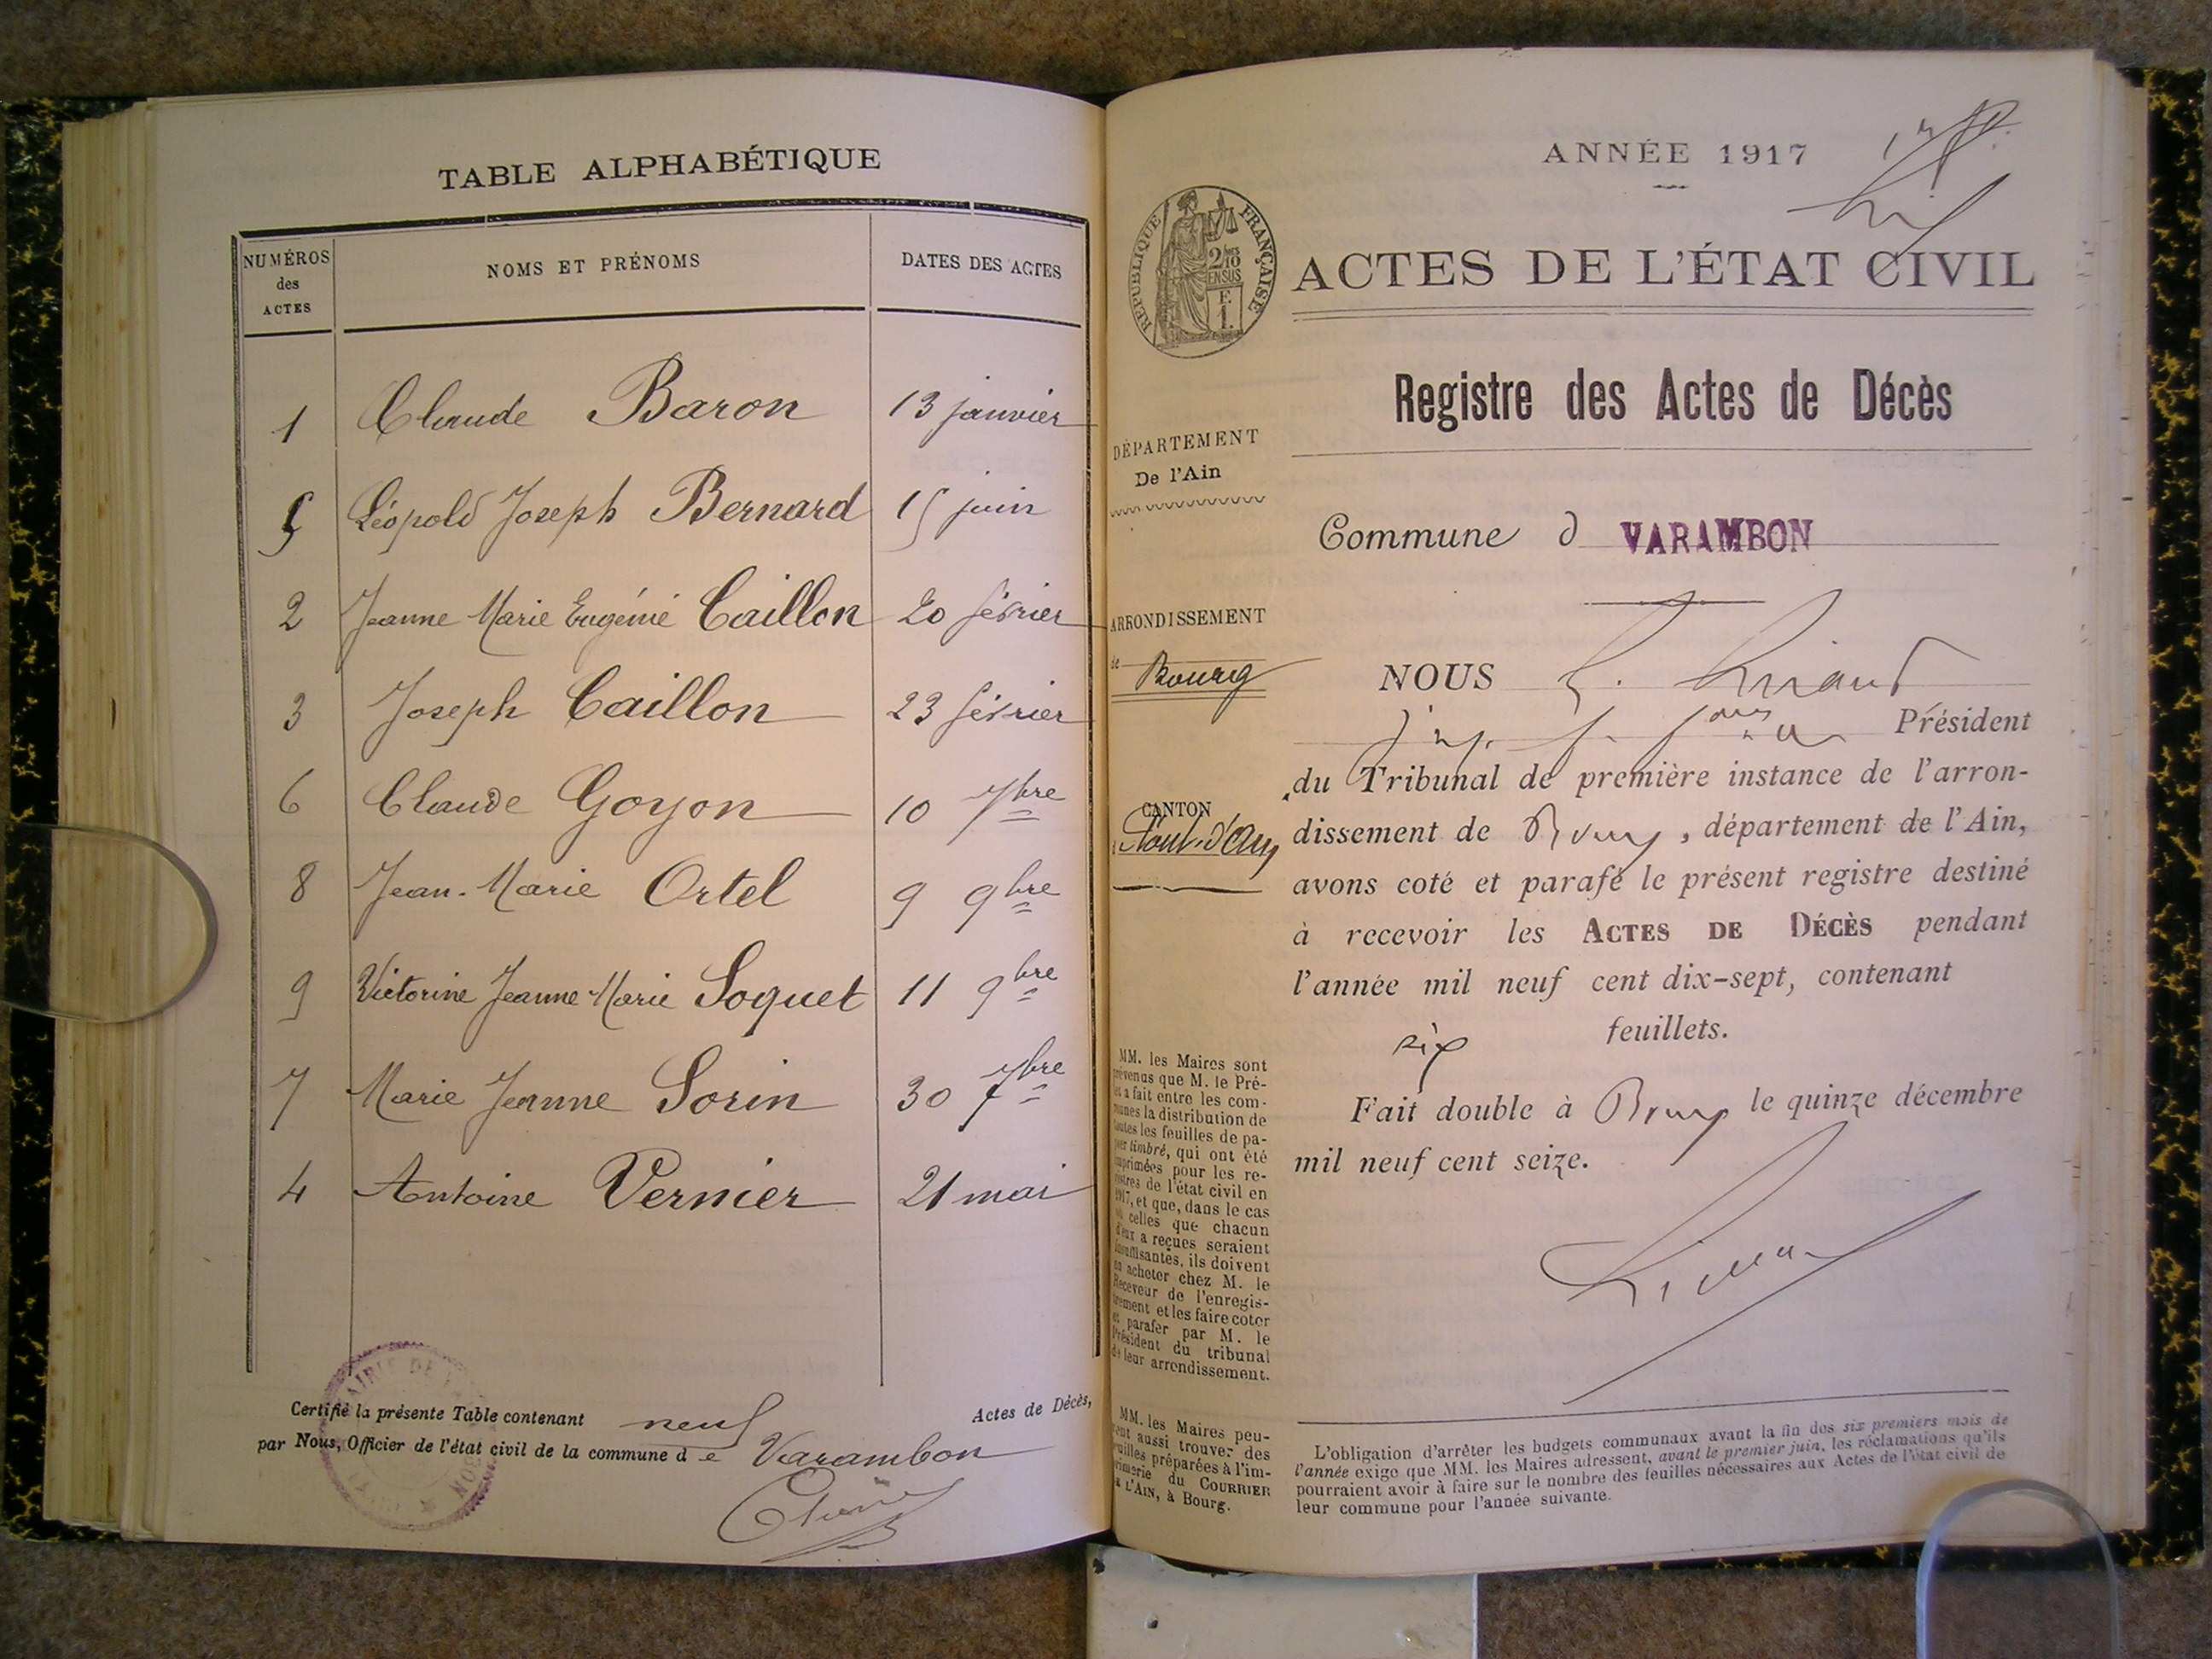 TABLE ALPHABÉTIQUE
NUMÉROS
des
ACTES
NOMS ET PRÉNOMS
DATES DES ACTES
1 Claude Baron 13 janvier
5 Léopold Joseph Bernard 15 juin
2 Jeanne Marie Eugénie Caillon 20 février
3 Joseph Caillon 23 février
6 Claude Goyon 10 7bre
8 Jean-Marie Ortel 9 9bre
9 Victorine Jeanne-Marie Soquet 11 9bre
7 Marie Jeanne Sorin 30 7bre
4 Antoine Vernier 21 mai
Certifié la présente Table contenant neuf Actes de Décès,
par Nous, Officier de l'état civil de la commune de Varambon
MAIRIE DE
ANNÉE 1917
RÉPUBLIQUE FRANÇAISE
2/10
EN SUS
F.
1.
ACTES DE L'ÉTAT CIVIL
Registre des Actes de Décès
DÉPARTEMENT
De l'Ain
Commune d VARAMBON
ARRONDISSEMENT
de Bourg
CANTON
Pont-d'Ain
NOUS
Président
du Tribunal de première instance de l'arron-
dissement de Bourg, département de l'Ain,
avons coté et parafé le présent registre destiné
à recevoir les ACTES DE DÉCÈS pendant
l'année mil neuf cent dix-sept, contenant
six feuillets.
Fait double à Bourg le quinze décembre
mil neuf cent seize.
MM. les Maires sont
prévenus que M. le Pré-
fet a fait entre les com-
munes la distribution de
toutes les feuilles de pa-
pier timbré, qui ont été
imprimées pour les re-
gistres de l'état civil en
1917, et que, dans le cas
où celles que chacun
d'eux a reçues seraient
insuffisantes, ils doivent
en acheter chez M. le
Receveur de l'enregis-
trement et les faire coter
et parafer par M. le
Président du tribunal
de leur arrondissement.
MM. les Maires peu-
vent aussi trouver des
feuilles préparées à l'im-
primerie du COURRIER
DE L'AIN, à Bourg.
L'obligation d'arrêter les budgets communaux avant la fin des six premiers mois de
l'année exige que MM. les Maires adressent, avant le premier juin, les réclamations qu'ils
pourraient avoir à faire sur le nombre des feuilles nécessaires aux Actes de l'état civil de
leur commune pour l'année suivante.